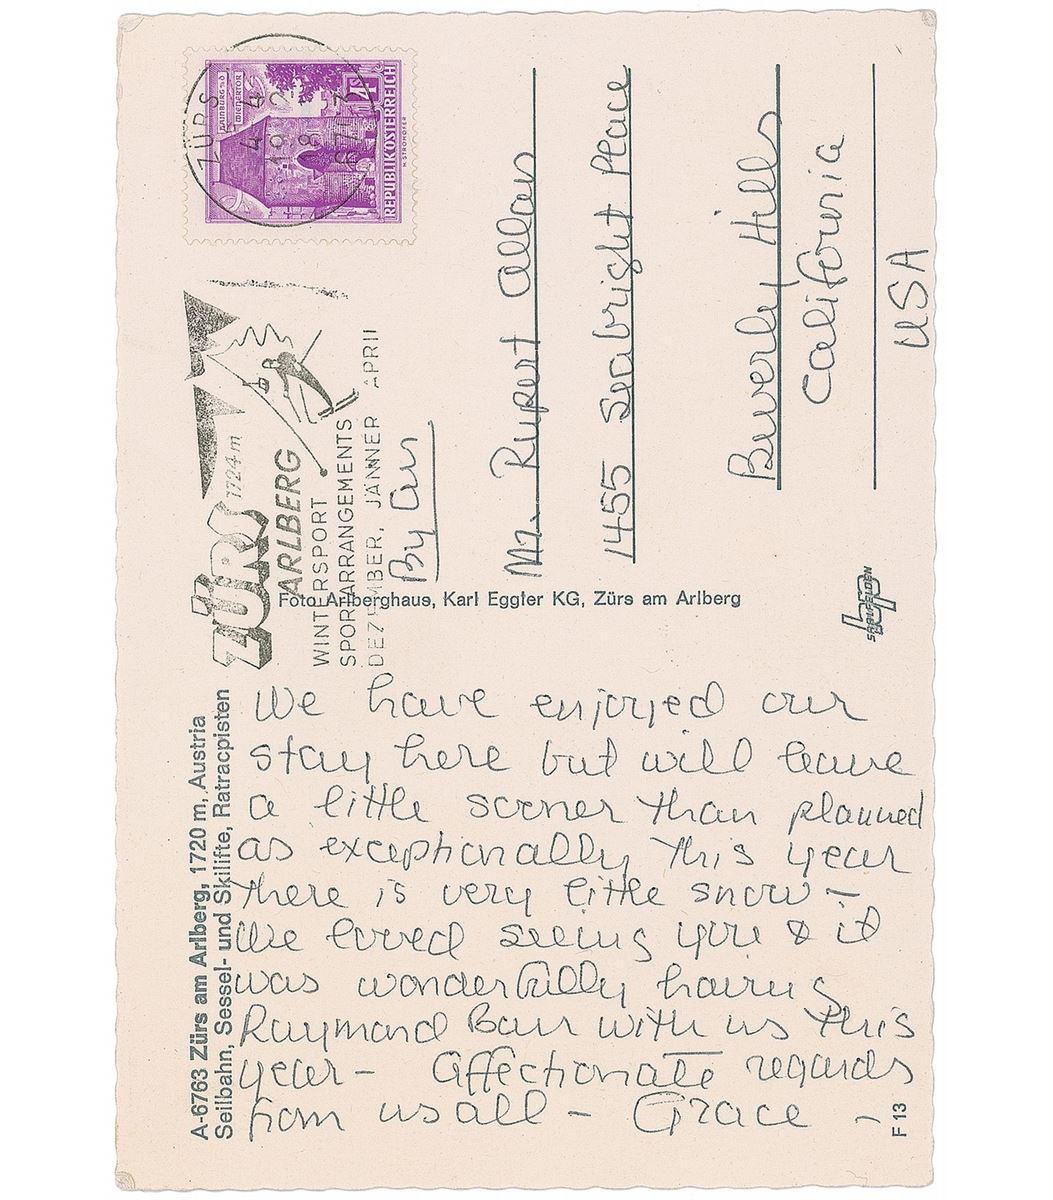 ZÜRS
4. 4. 72-
19 8
6763
HAINBURG a.d.
WIENERTOR
4S
REPUBLIK ÖSTERREICH
H. STROHOFER
ZÜRS 1724 m
ARLBERG
WINTERSPORT
SPORARRANGEMENTS
DEZEMBER, JÄNNER APRIL
By air
Mr. Rupert Allan
1455 Seabright Place
Beverly Hills
California
USA
Foto Arlberghaus, Karl Eggler KG, Zürs am Arlberg
SAALFELDEN
A-6763 Zürs am Arlberg, 1720 m, Austria
Seilbahn, Sessel- und Skilifte, Ratracpisten
We have enjoyed our
stay here but will leave
a little sooner than planned
as exceptionally this year
there is very little snow –
We loved seeing you & it
was wonderfully having
Raymond Barr with us this
year – Affectionate regards
from us all – Grace –
F 13